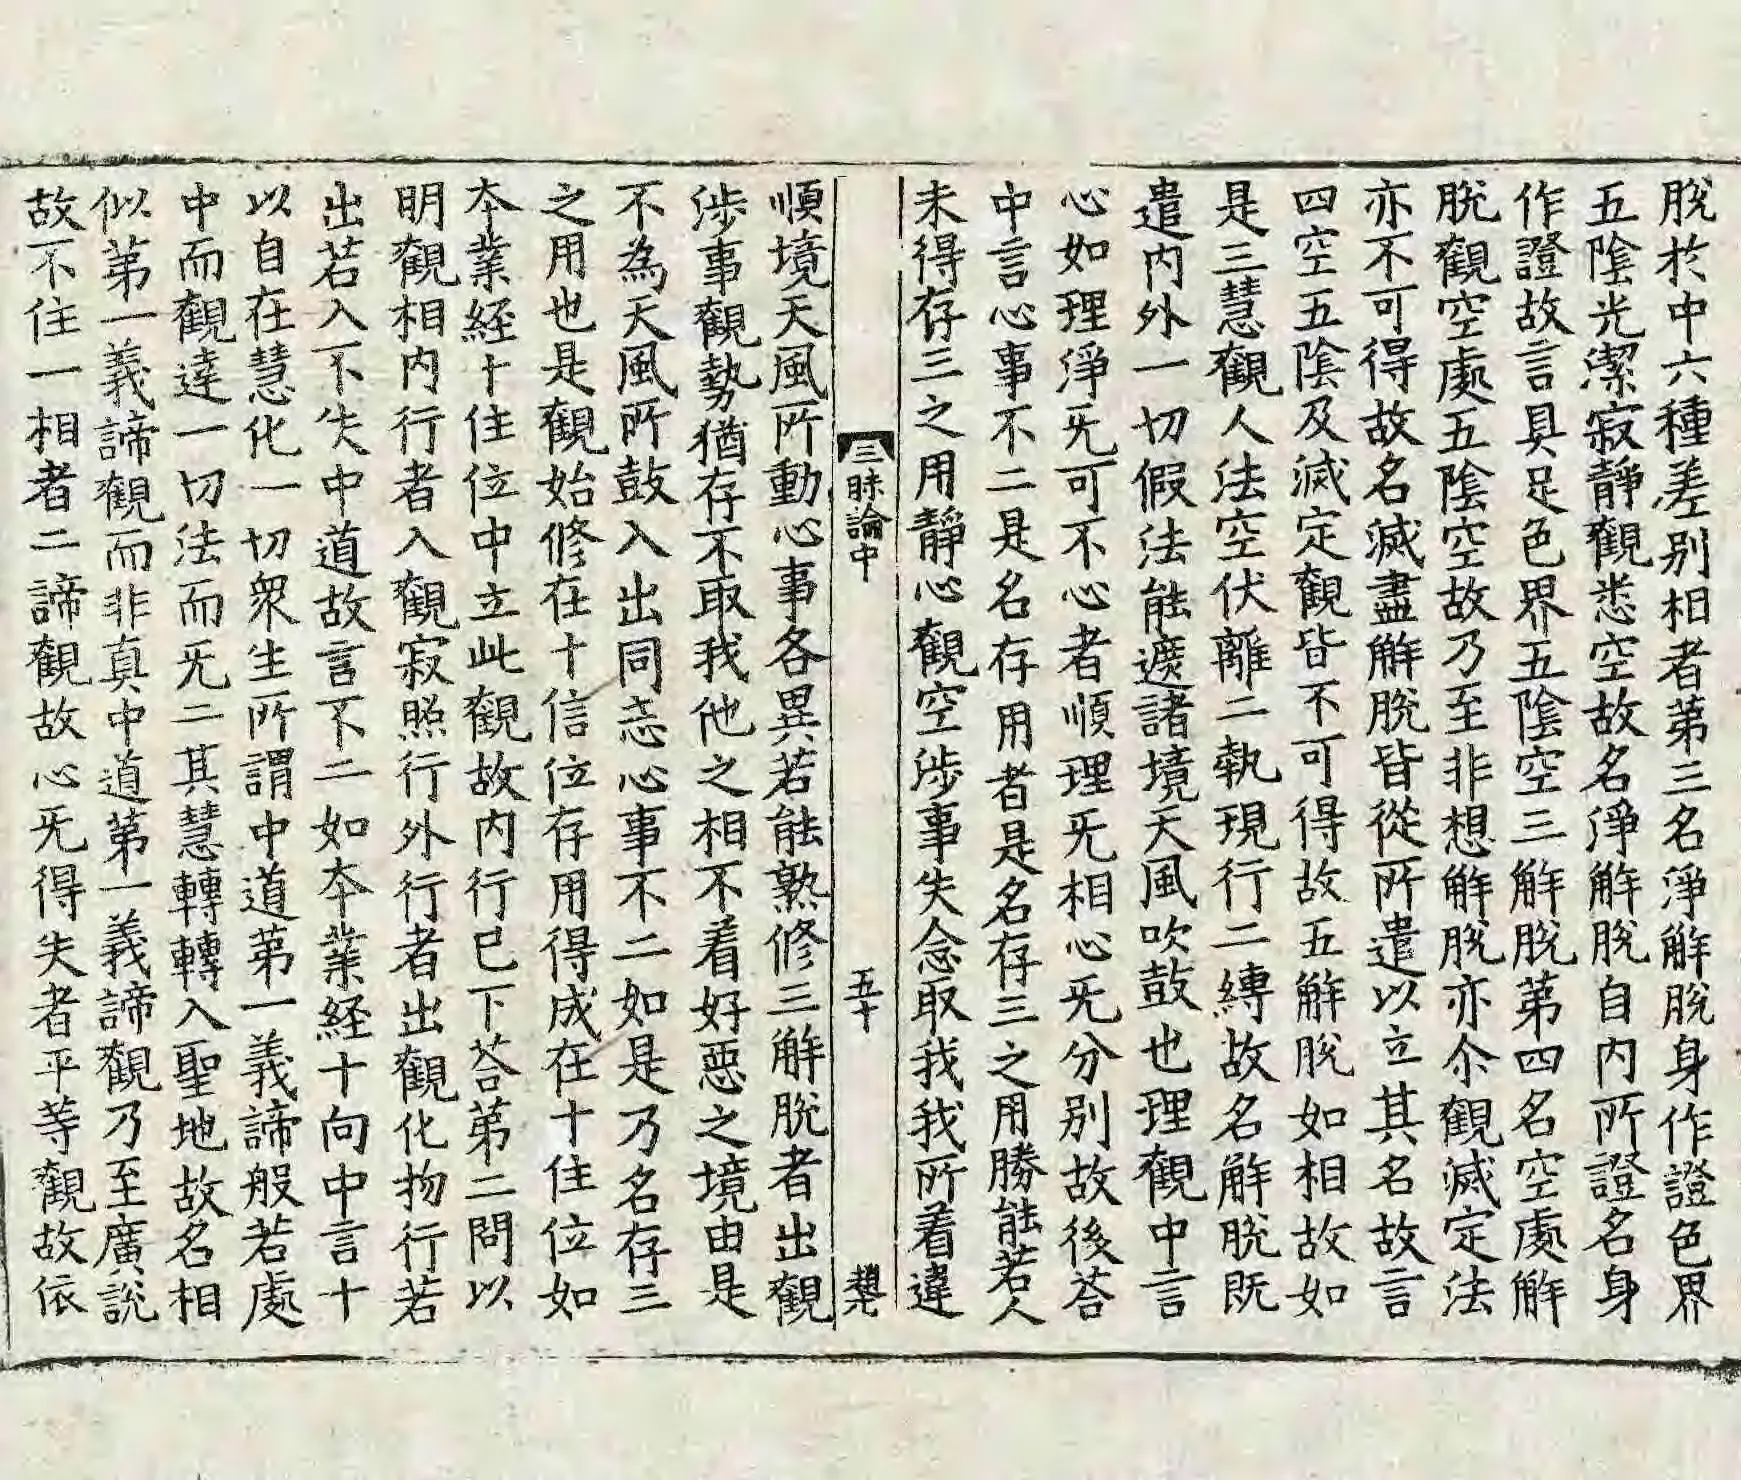 脫於中六種差别相者第三名淨解脫身作證色界
五陰光潔寂靜觀悉空故名淨解脫自内所證名身
作證故言具足色界五陰空三解脫第四名空處解
脫觀空處五陰空故乃至非想解脫亦尒觀滅定法
亦不可得故名滅盡解脫皆從所遣以立其名故言
四空五陰及滅定觀皆不可得故五解脫如相故如
是三慧觀人法空伏離二執現行二縛故名解脫既
遣内外一切假法能遮諸境天風吹鼓也理觀中言
心如理淨旡可不心者順理旡相心旡分别故後荅
中言心事不二是名存用者是名存三之用勝能若人
未得存三之用靜心觀空涉事失念取我我所着違
三昧論中　五十
順境天風所動心事各異若能熟修三解脫者出觀
涉事觀勢猶存不取我他之相不着好惡之境由是
不為天風所鼓入出同忘心事不二如是乃名存三
之用也是觀始修在十信位存用得成在十住位如
本業経十住位中立此觀故内行已下荅第二問以
明觀相内行者入觀寂照行外行者出觀化物行若
出若入不失中道故言不二如本業経十向中言十
以自在慧化一切衆生所謂中道第一義諦般若處
中而觀達一切法而旡二其慧轉轉入聖地故名相
似第一義諦觀而非真中道第一義諦觀乃至廣說
故不住一相者二諦觀故心旡得失者平等觀故依